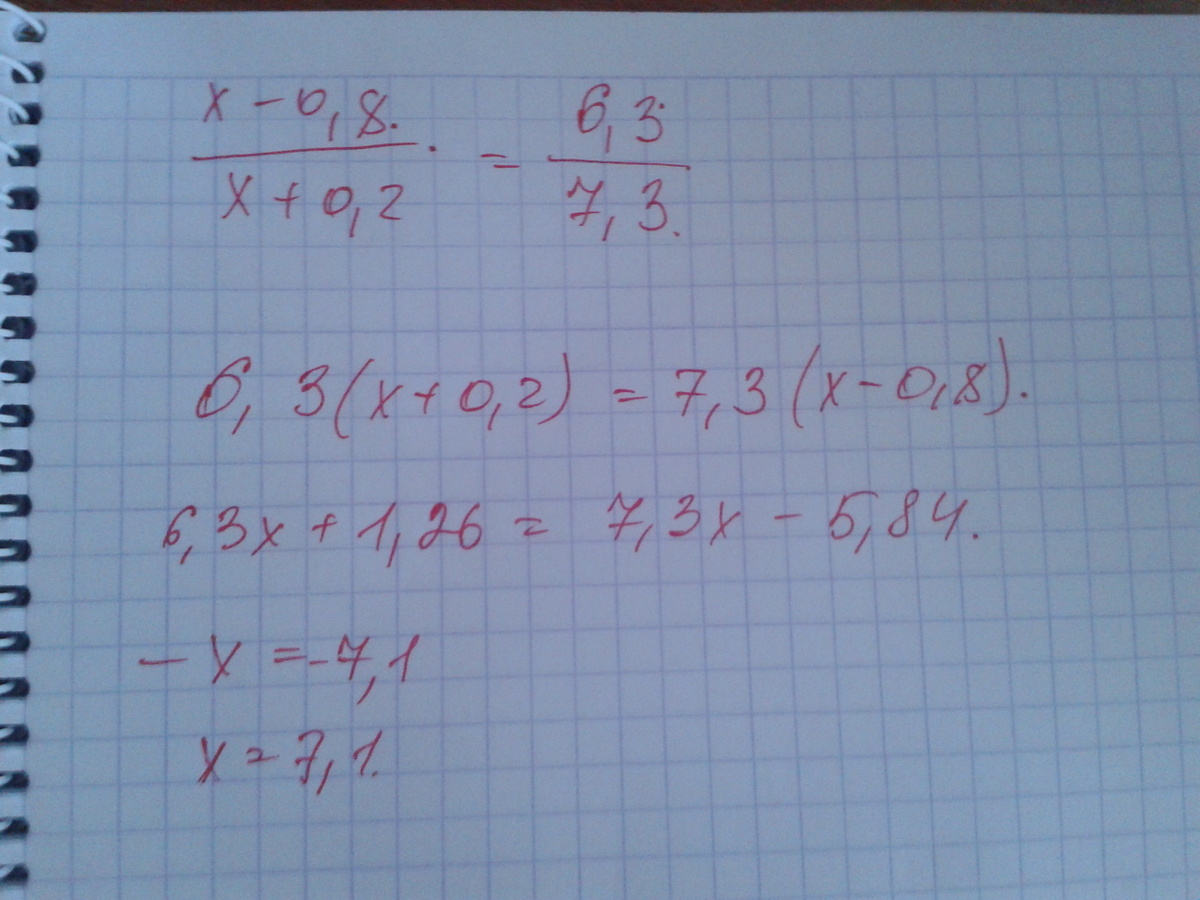 x - 0,8.
x + 0,2
. =
6,3
7,3.
6,3(x+0,2) = 7,3(x-0,8).
6,3x + 1,26 = 7,3x - 5,84.
- x = -7,1
x = 7,1.